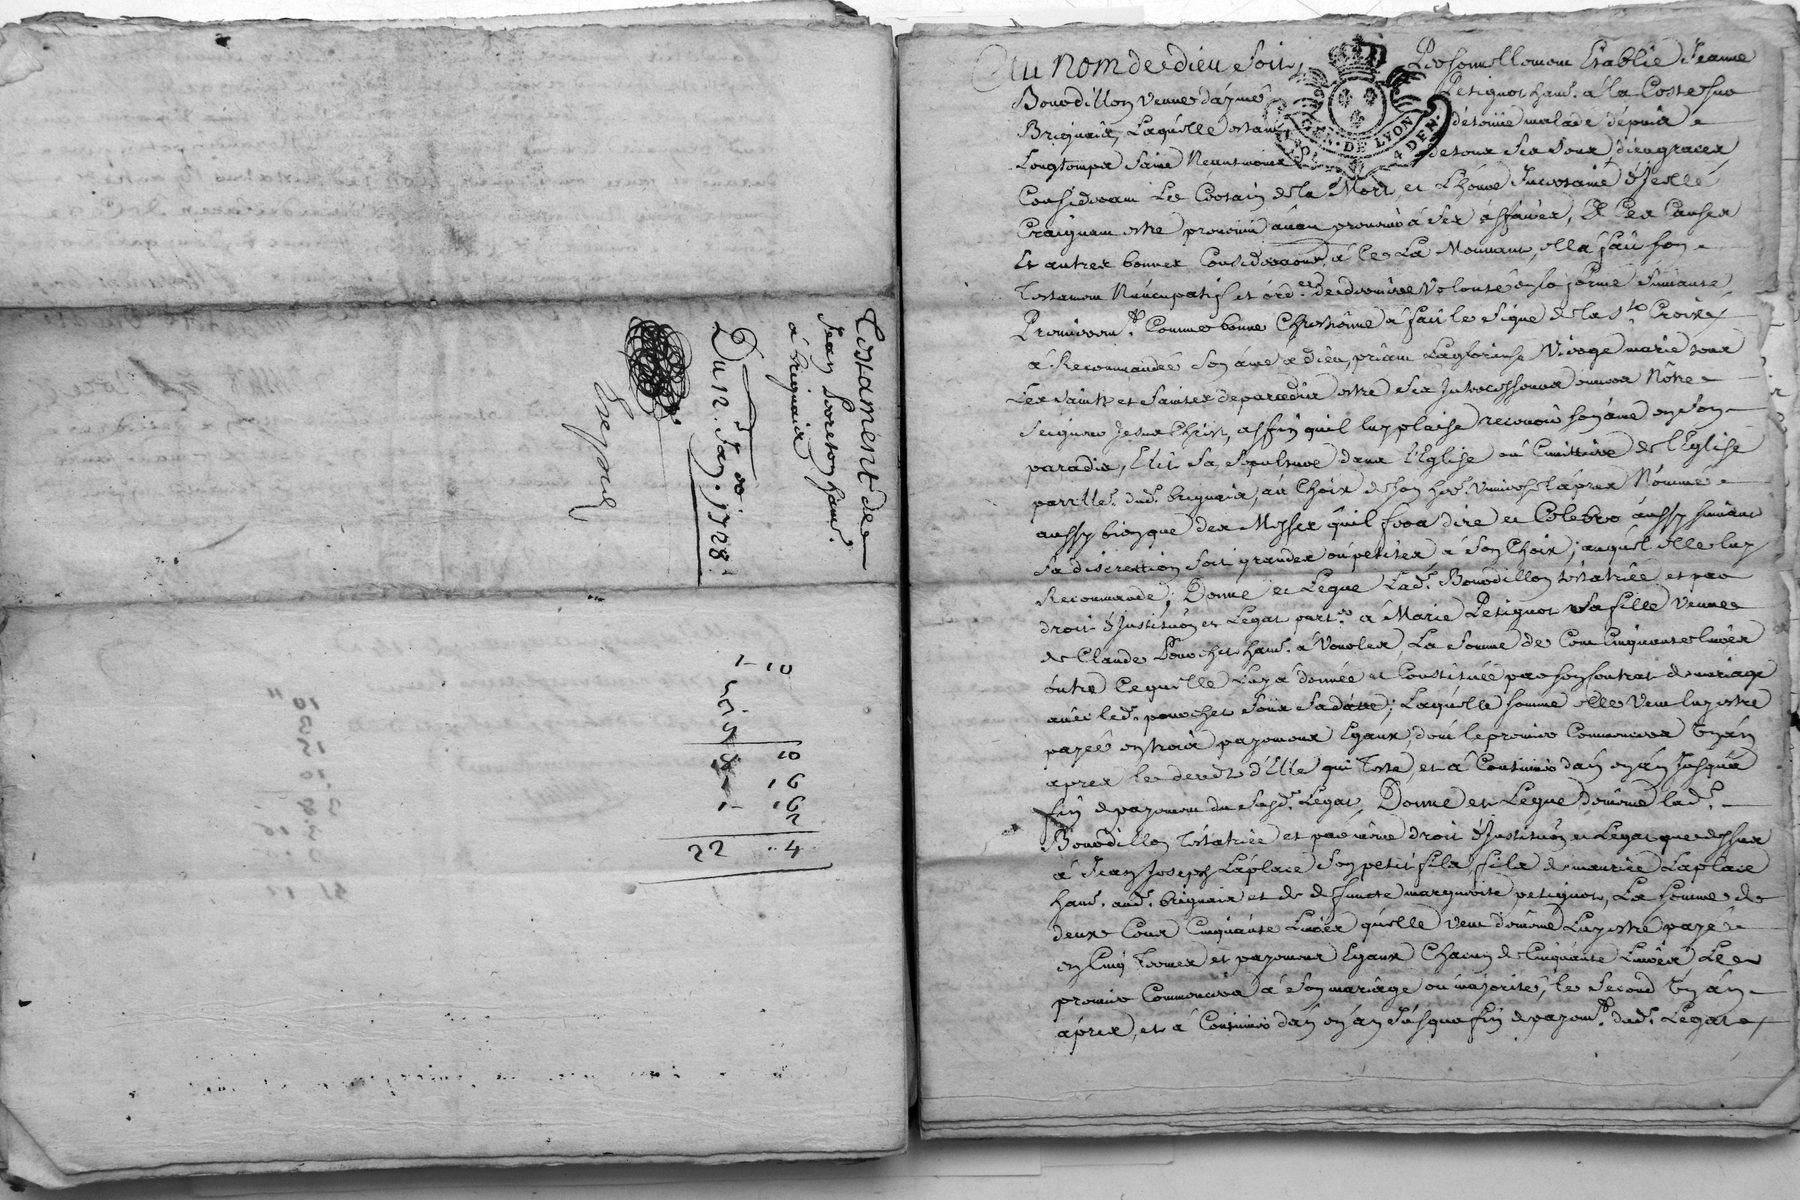 Testament de
Jean Poreton hant.
à brignaix
Du 12. Jan. 1728.
1-10
10
16
16
22 .. 4
Au nom de dieu soit, Personnellement Establie Jeanne
Bourdillon veuve d'aymé Petignot hant. à la Coste sur
Brignaix, Laquelle estant détenüe malade dépuis
Longtemps saine Neantmoins de tous ses sens dieu graces
GEN. DE LYON
4 DEN.
Considerant La Certain de la Mort, et L'heure Incertaine d'Jcelle
Craignant estre prevenüe avan pourvoir à ses affaires, Et Ces Causes
Et autres bonnes Considerations à ce La Mouvant, ella fait son
Testament Nuncupatif et ord.re de derniere Volonté en la forme suivante
Premierem.t Comme bonne Chrestienne à fait le signe de la s.te Croix
à Recommandée son ame à dieu, priant La glorieuse Vierge marie tous
Les saints et saintes de paradis estre ses Intercesseurs envers Nôtre
Seigneur Jesus Christ, affin quil luy plaise recevoir son ame en son
paradis, Elit sa sepulture dans l'Eglise ou Cimittiere de l'Eglise
parrlle. dud. brignaix, au Choix de son her. universel apres Nommé
aussy bien que des Messes qu'il fera dire et Celebrer aussy suivant
sa discrettion soit grandes ou petites à son Choix; auquel elle luy
Recommande; Donne et Legue Lad. Bourdillon testatrice et par
droit d'Jnstitution et Legat part.er à Marie Petignot sa fille veuve
de Claude Ponchet hant. à Vourles, La somme de Cent Cinquante livres
outre Ce qu'elle luy à donnée et Constituée par son Contrat de mariage
avec led. ponchet sous sa datte; Laquelle somme elle veut luy estre
payée en trois payemens Egaux, dont le premier Commencera un an
apres le deced d'Elle qui teste, et à Continüer d'an en an Jusqu'a
fin de payement du susd. Legat, Donne et Legue de même lad.
Bourdillon testatrice et par même droit d'Jnstitution et Legat que dessus
à Jean Joseph Laplace son petit fils, fils de maurice Laplace
hant. aud. brignaix et de deffuncte marguerite petignot, La somme de
deux Cent Cinquante Livres qu'elle veut de même luy estre payé
en Cinq termes et payemens Egaux Chacun de Cinquante livres Le
premier Commencera à son mariage ou majorité, le second un an
apres, et à Continüer d'an en an Jusqu'a fin de payem.t dud. Legat